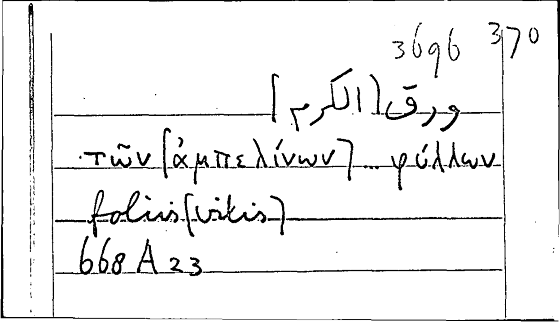 3696 370
ورق [الكرم]
τῶν [ἀμπελίνων] ... φύλλων
foliis [vitis]
668 A 23